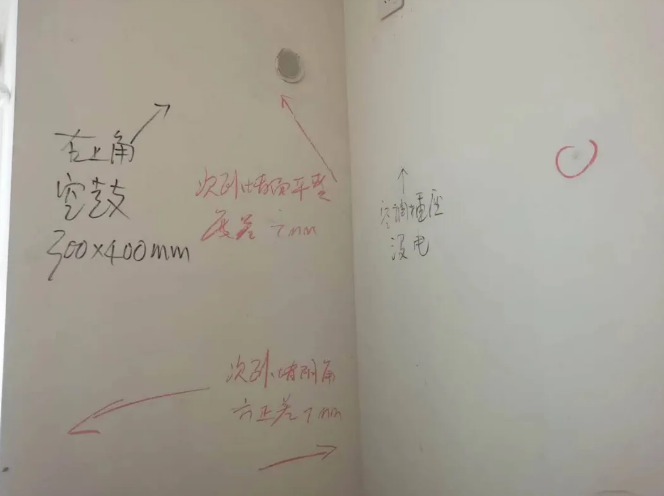 右上角
空鼓
300×400mm
次卧墙面平整
度差7mm
空调插座
没电
次卧墙阴角
方正差7mm